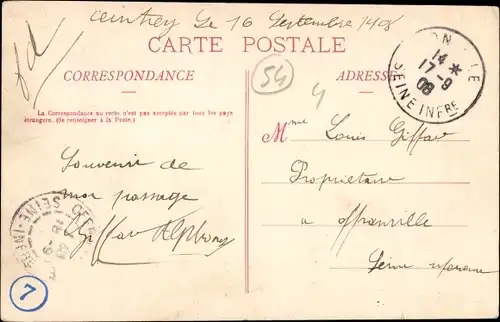 Ceintrey Le 16 Septembre 1908
CARTE POSTALE
CORRESPONDANCE
ADRESSE
54
4
La Correspondance au recto n'est pas acceptée par tous les pays
étrangers. (Se renseigner à la Poste.)
14 *
17-9
08
SEINE INFRE
Mme Louis Giffard
Souvenir de
Propriétaire
mon passage
a Offranville
Giffard Alphonse
Seine inférieure
SEINE-INFRE
7